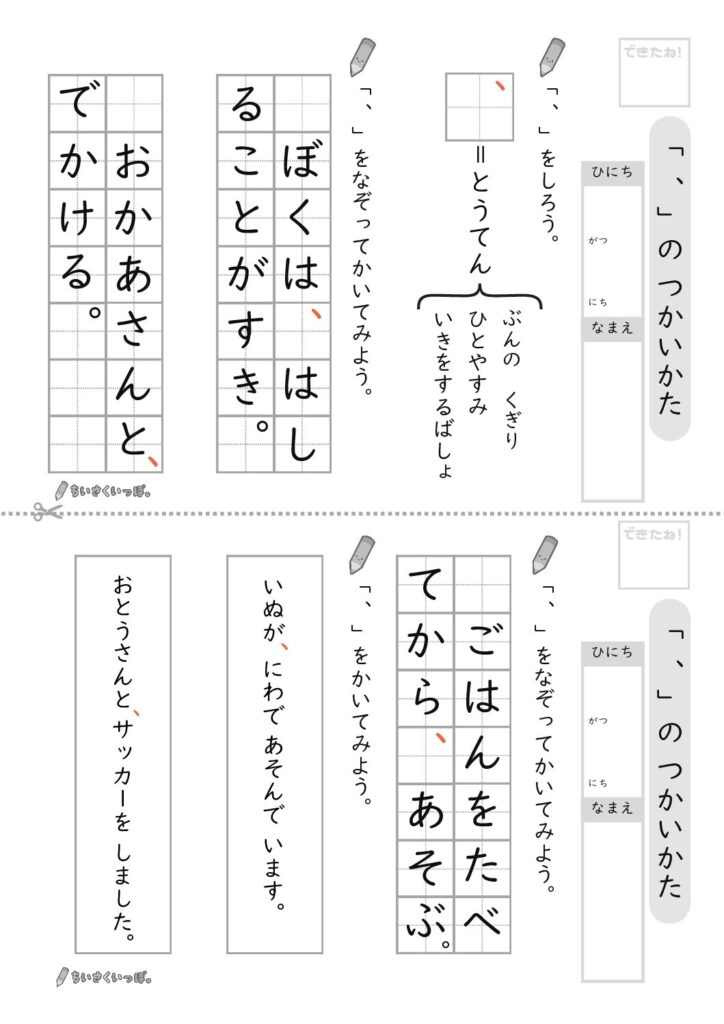 「、」の つかいかた
できたね!
ひにち
がつ
にち
なまえ
「、」をしろう。
、=とうてん
ぶんの くぎり
ひとやすみ
いきをするばしょ
「、」をなぞってかいてみよう。
ぼくは、はし
ることがすき。
おかあさんと、
でかける。
ちいさくいっぽ。
「、」の つかいかた
できたね!
ひにち
がつ
にち
なまえ
「、」をなぞってかいてみよう。
ごはんをたべ
てから、あそぶ。
「、」をかいてみよう。
いぬが、にわで あそんで います。
おとうさんと、サッカーを しました。
ちいさくいっぽ。